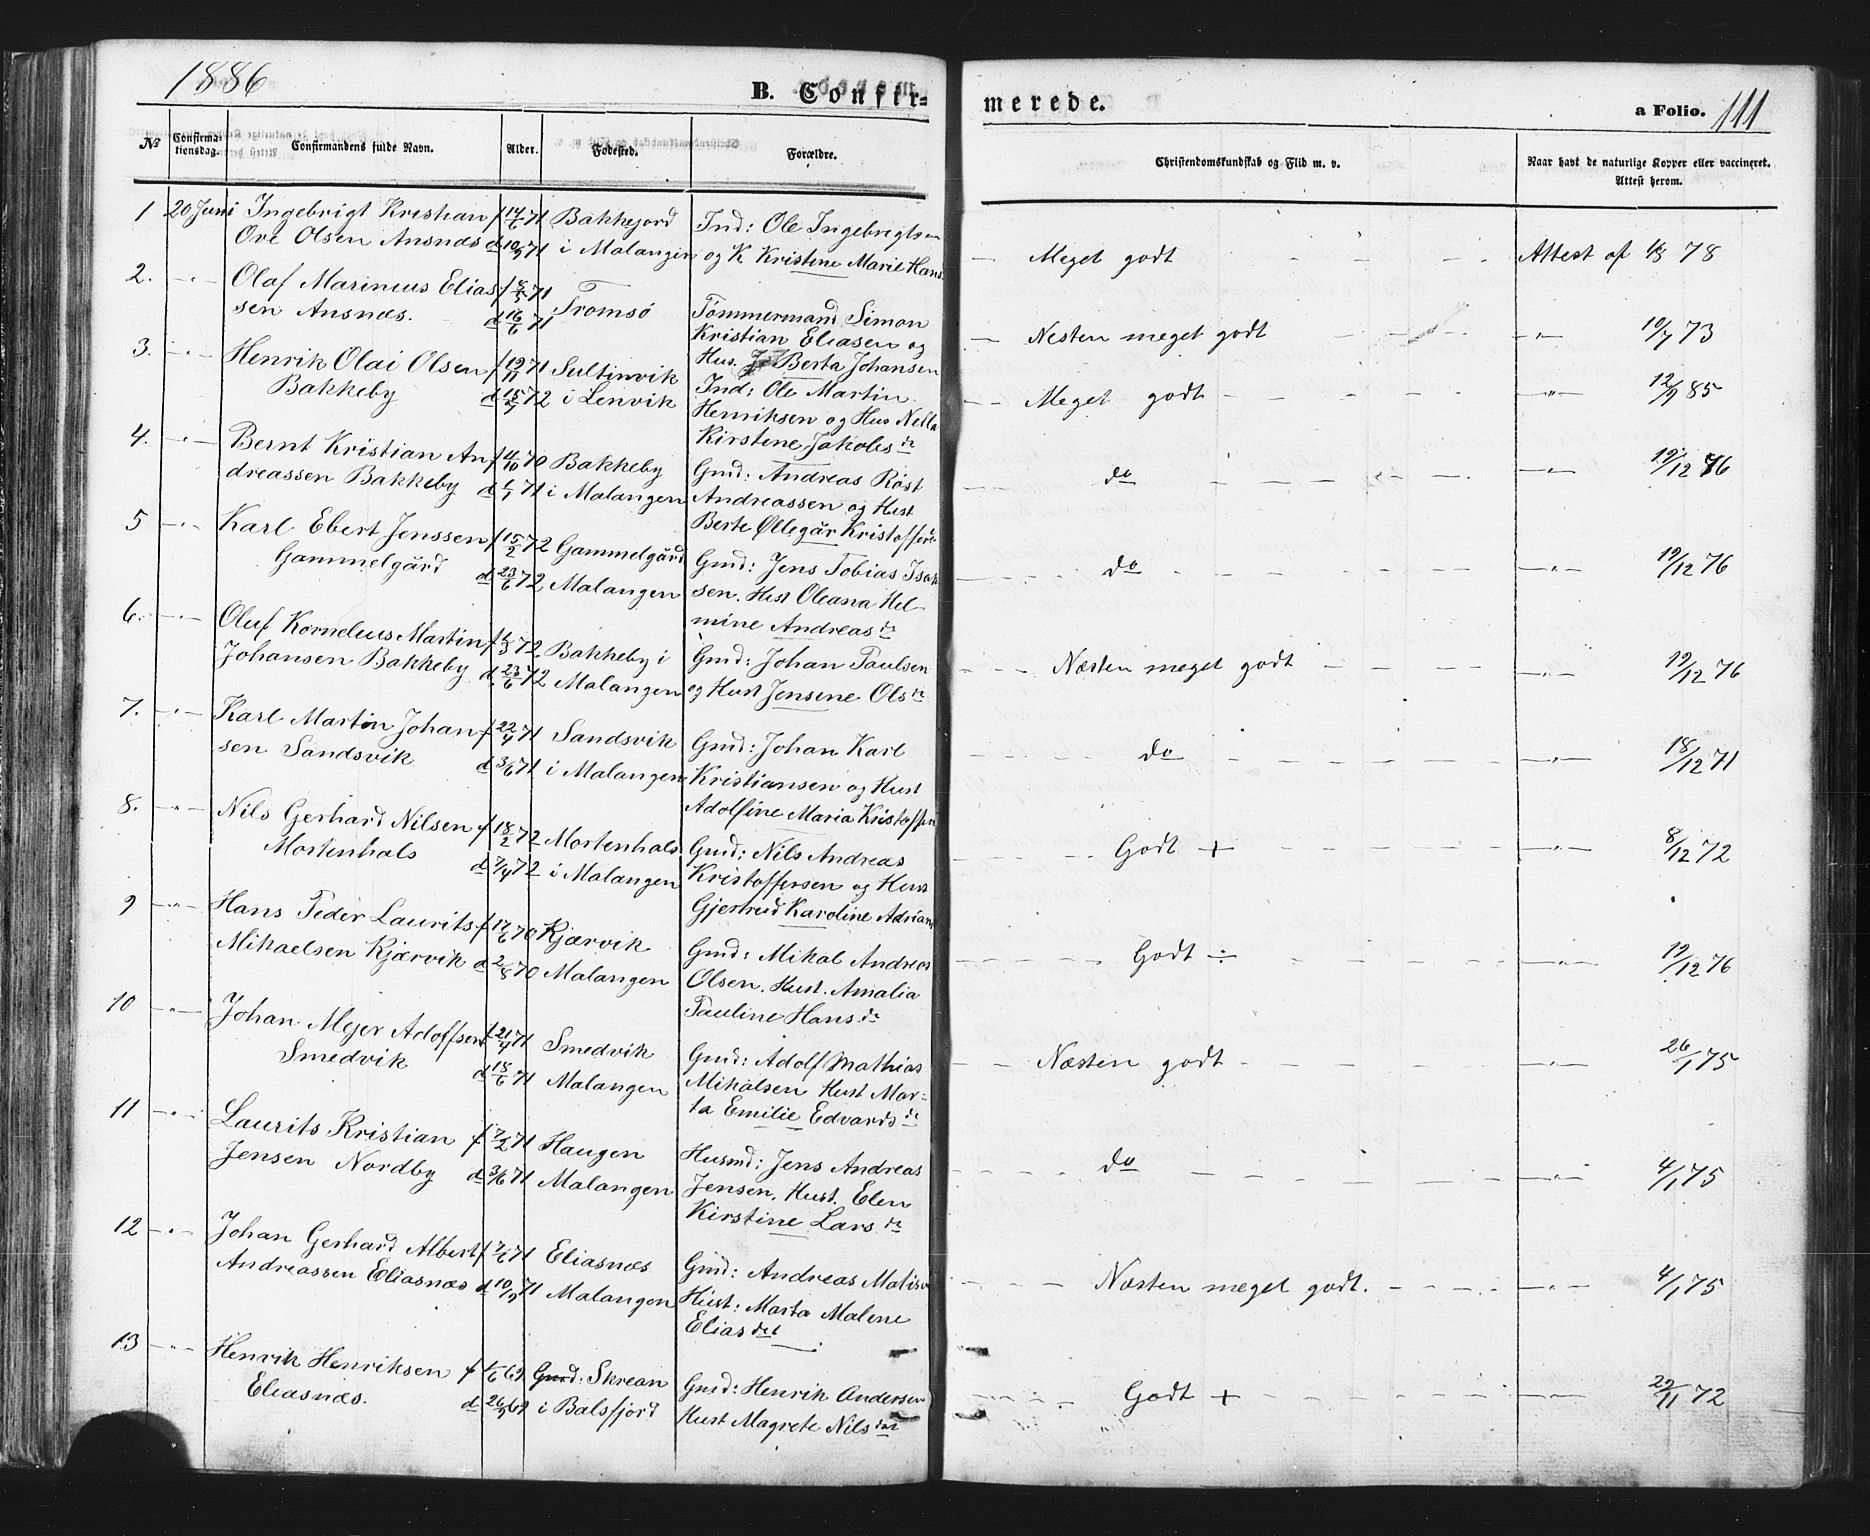 1886
B. Confir=
merede.
a Folio. 111
№
Confirma-
tionsdag.
Confirmandens fulde Navn.
Alder.
Fødested.
Forældre.
Christendomskundskab og Flid m. v.
Naar havt de naturlige Kopper eller vaccineret.
Attest herom.
1 20 Juni Ingebrigt Kristian f 14/6 71 Bakkejord Ind: Ole Ingebregtsen
Ove Olsen Ansnæs d 10/9 71 i Malangen og K Kristene Marie Hans
Meget godt Attest af 78
2. Olaf Marinius Elias f 8/5 71 Tromsø Tømmermand Simon
sen Ansnæs. d 16/6 71 Kristian Eliasen og
Hus. Berta Johansen
Nesten meget godt 10/7 73
3. Henrik Olai Olsen f 19/11 71 Sultinvik Ind: Ole Martin
Bakkeby d 15/7 72 i Lenvik Henriksen og Hus Nella
Kirstene Jakobs dr
Meget godt 12/9 85
4. Bernt Kristian An f 4/10 70 Bakkeby Gmd: Andreas Røst
dreassen Bakkeby d 71 i Malangen Andreassen og Hust
Berte Øllegår Kristoffers
do 19/12 76
5 Karl Ebert Jenssen f 15/2 72 Gammelgård Gmd: Jens Tobias Isak
Gammelgård d 23/6 72 Malangen sen. Hust Oleana Hel-
mine Andreas dr
do 19/12 76
6. Oluf Kornelius Martin f 1/3 72 Bakkeby i Gmd: Johan Paulsen
Johansen Bakkeby d 23/6 72 Malangen og Hust Jensine Ols dr
Næsten meget godt 19/12 76
7. Karl Martin Johan f 22/4 71 Sandsvik Gmd: Johan Karl
sen Sandsvik d 3/6 71 i Malangen Kristiansen og Hust
Adolfine Maria Kristoffers
do 18/12 71
8. Nils Gerhard Nilsen f 18/2 72 Mortenhals Gmd: Nils Andreas
Mortenhals d 7/4 72 i Malangen Kristoffersen og Hus
Gjertrud Karoline Adrians
Godt + 8/12 72
9 Hans Peder Laurits f 17/6 70 Kjærvik Gmd: Mikal Andreas
Mikaelsen Kjærvik d 2/8 70 Malangen Olsen. Hust. Amalia
Pauline Hans dr
Godt ÷ 19/12 76
10 Johan Mejer Adolfsen f 21/4 71 Smedvik Gmd: Adolf Mathias
Smedvik d 18/6 71 Malangen Mikalsen Hust Mar-
ta Emilie Edvards dr
Næsten godt 26/1 75
11 Laurits Kristian f 7/2 71 Haugen Husmd: Jens Andreas
Jensen Nordby d 3/6 71 Malangen Jensen. Hust. Elen
Kirstine Lars dr
do 4/1 75
12 Johan Gerhard Albert f 7/6 71 Eliasnæs Gmd: Andreas Matis
Andreassen Eliasnæs d 10/9 71 Malangen Hust: Marta Malene
Elias dat
Næsten meget godt. 4/1 75
13 Henrik Henriksen f 1/6 69 Gmd: Skrean Gmd: Henrik Andersen
Eliasnæs. d 26/9 69 i Balsfjord Hust Magrete Nils dat
Godt + 22/11 72